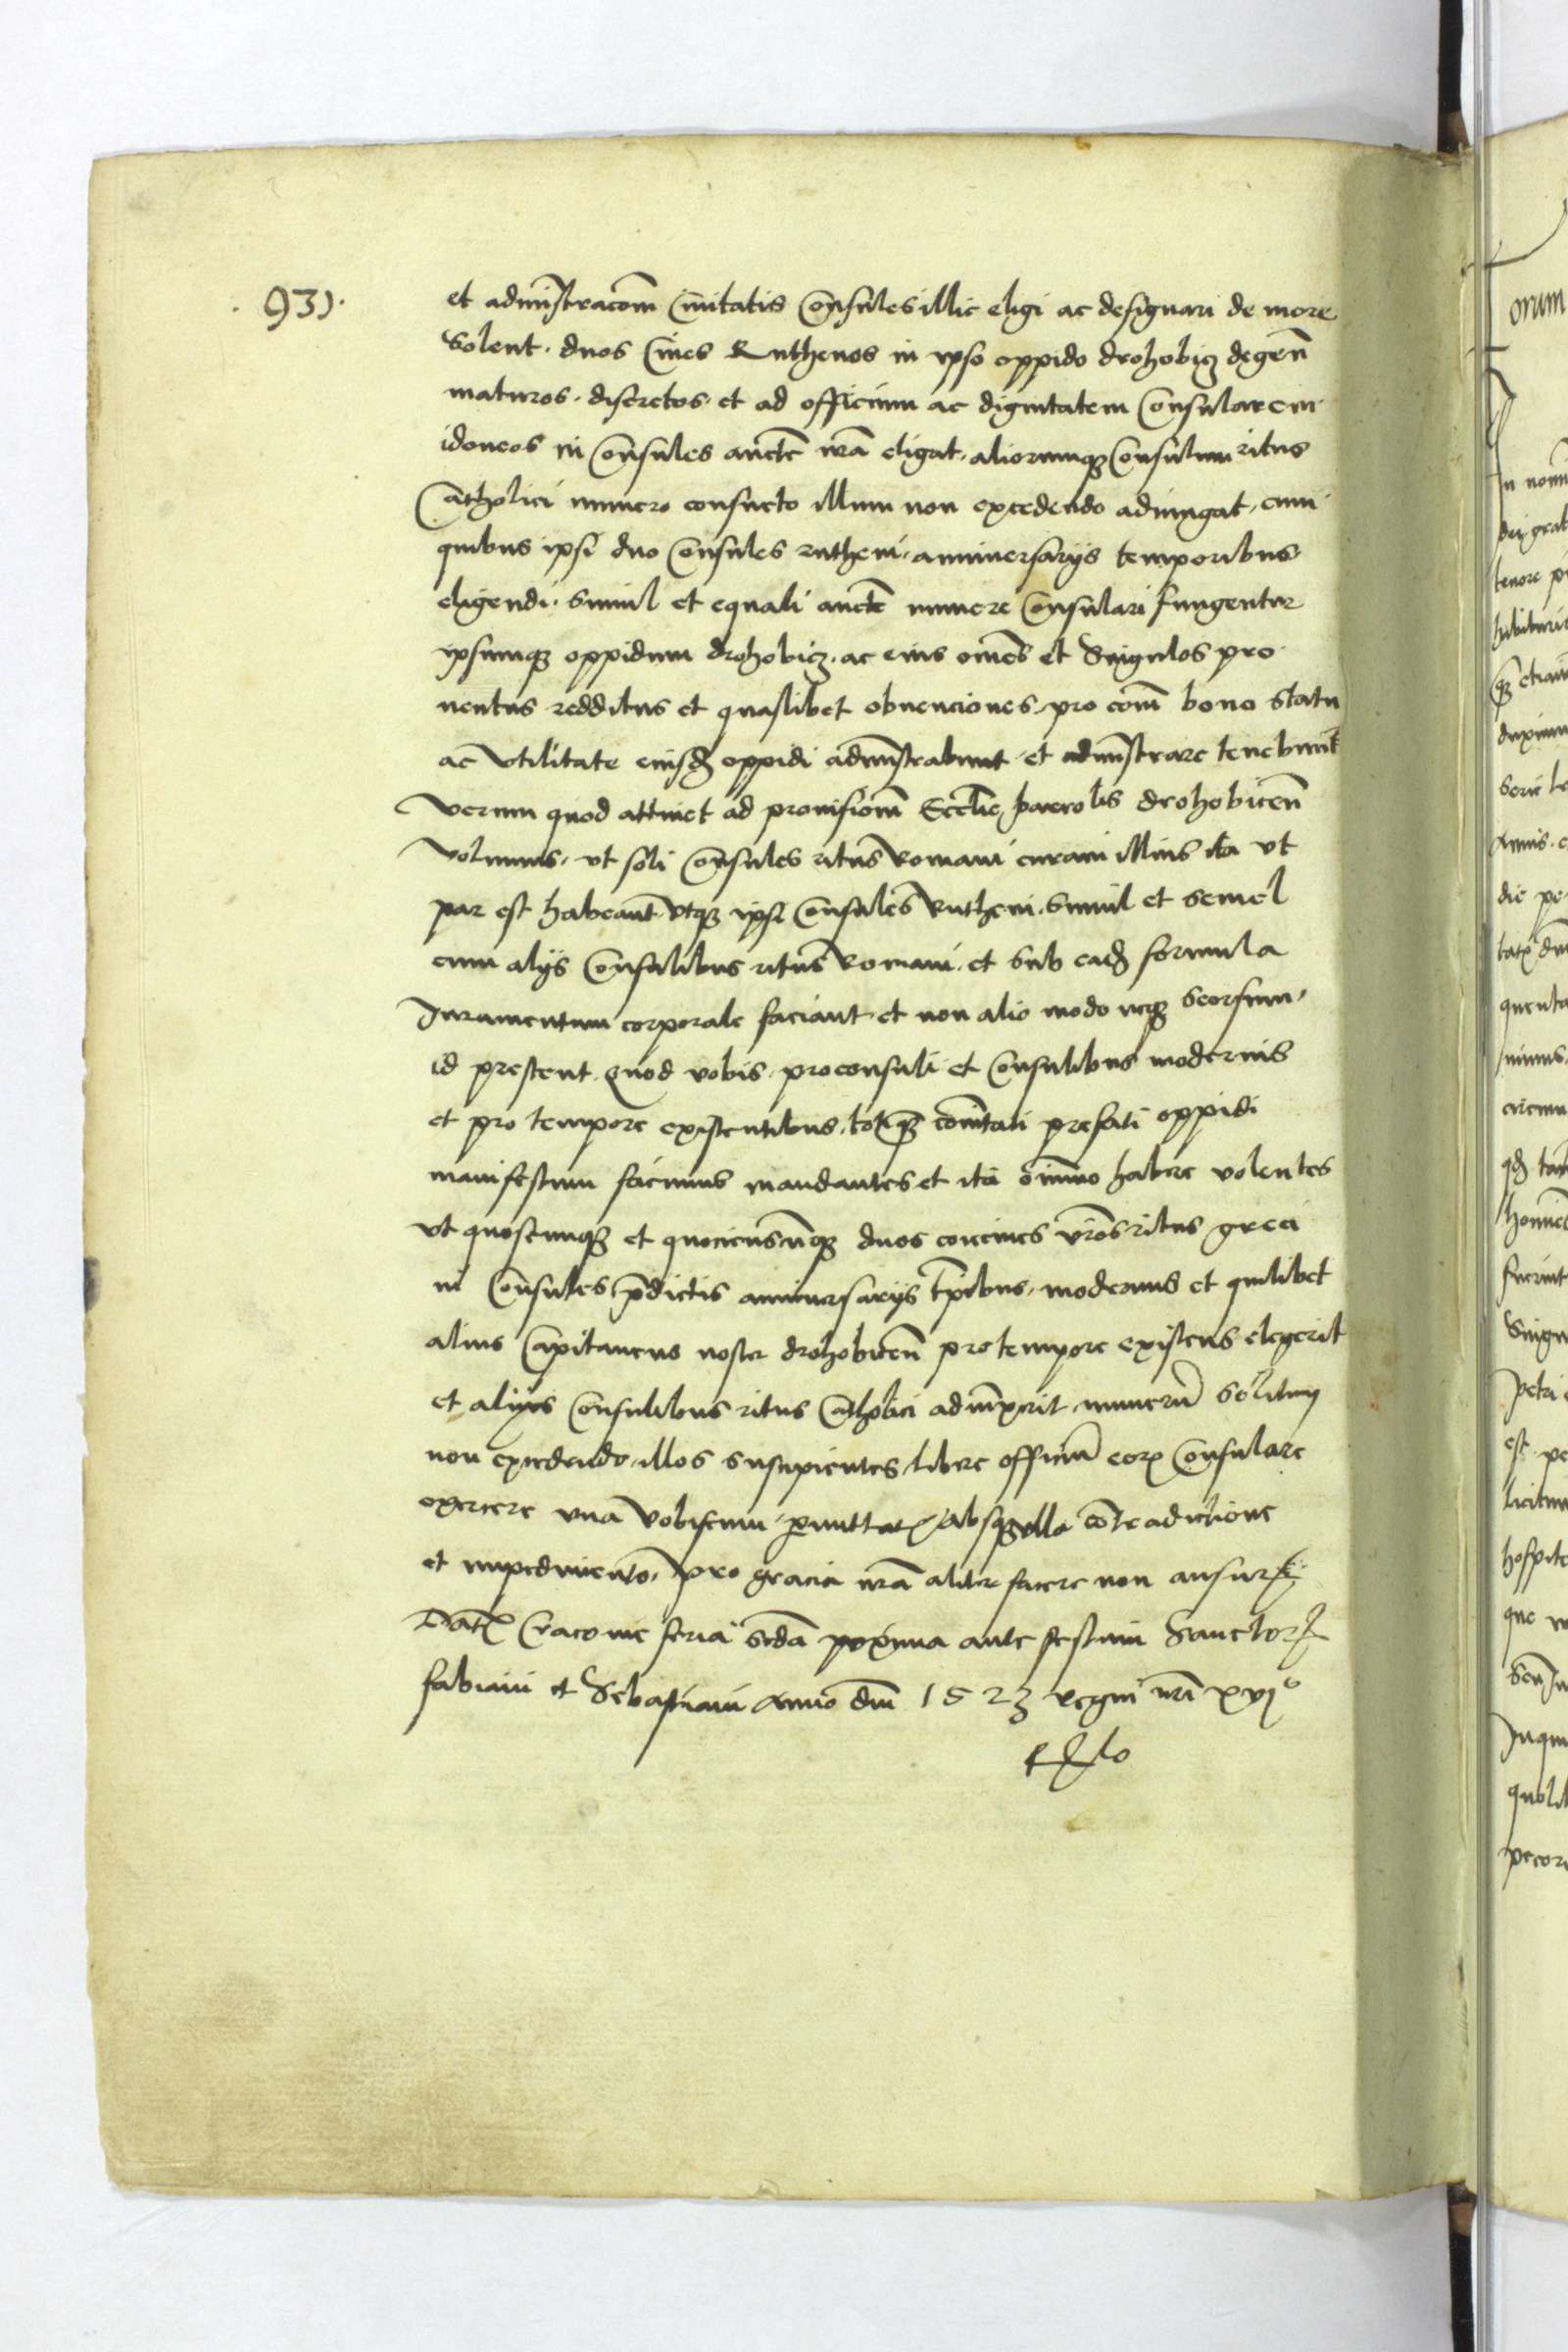 . 931.
et admīstracōm Civitatis Consules illic eligi ac designari de more
Solent. duos Cives Ruthenos in ipso oppido drohobicz degen̄
maturos. discretos. et ad officium ac dignitatem Consularem
idoneos in Consules auctē nr̄a eligat. aliorumq₃ Consulum ritus
Catholici numero consueto illum non excedendo adiungat, cum
quibus ipsi duo Consules rutheni. anniversarijs temporibus
eligendi. Simul et equali auctē munere Consulari fungentur
ipsumq₃ oppidum drohobicz. ac eius om̄es et Singulos pro
ventus redditus et quaslibet obvenciones pro com̄ bono statu
ac Utilitate eiusd oppidi admīstrabunt et admīstrare tenebunt̄
Verum quod attinet ad provisiōm Ecclīe parrolis drohobicen̄
Volumus. ut soli Consules ritus Romani curam illius ita ut
par est habeant utq₃ ipsi Consules Rutheni. Simul et semel
cum alijs Consulibus ritus Romani. et sub ead formula
Juramentum corporale faciant et non alio modo neq₃ seorsum.
id prestent. Quod vobis. proconsuli et Consulibus modernis
et pro tempore existentibus. totiq₃ cōmitati prefati oppidi
manifestum facimus mandantes et ita ōmnino habere volentes
ut quoscumq₃ et quociensc̄nq₃ duos concives vr̄os ritus greci
in Consules p̄dictis anniversarijs tp̄ibus. modernus et quilibet
alius Capitaneus noster drohobicen̄ pro tempore existens elegerit
et alijs Consulibus ritus Catholici adiūxerit numerū solitum
non excedendo. illos suscipientes libere officiū eor Consulare
exercere una Vobiscum. p̄mittatis Absq₃ ulla cōtradictione
et impedimento. pro gracia nr̄a aliter facere non ausuri
Dat Cracovie feria scd̄a proxima ante festum Sanctor
fabiani et Sebastiani Anno dn̄i 1523 regni nr̄i xvi°